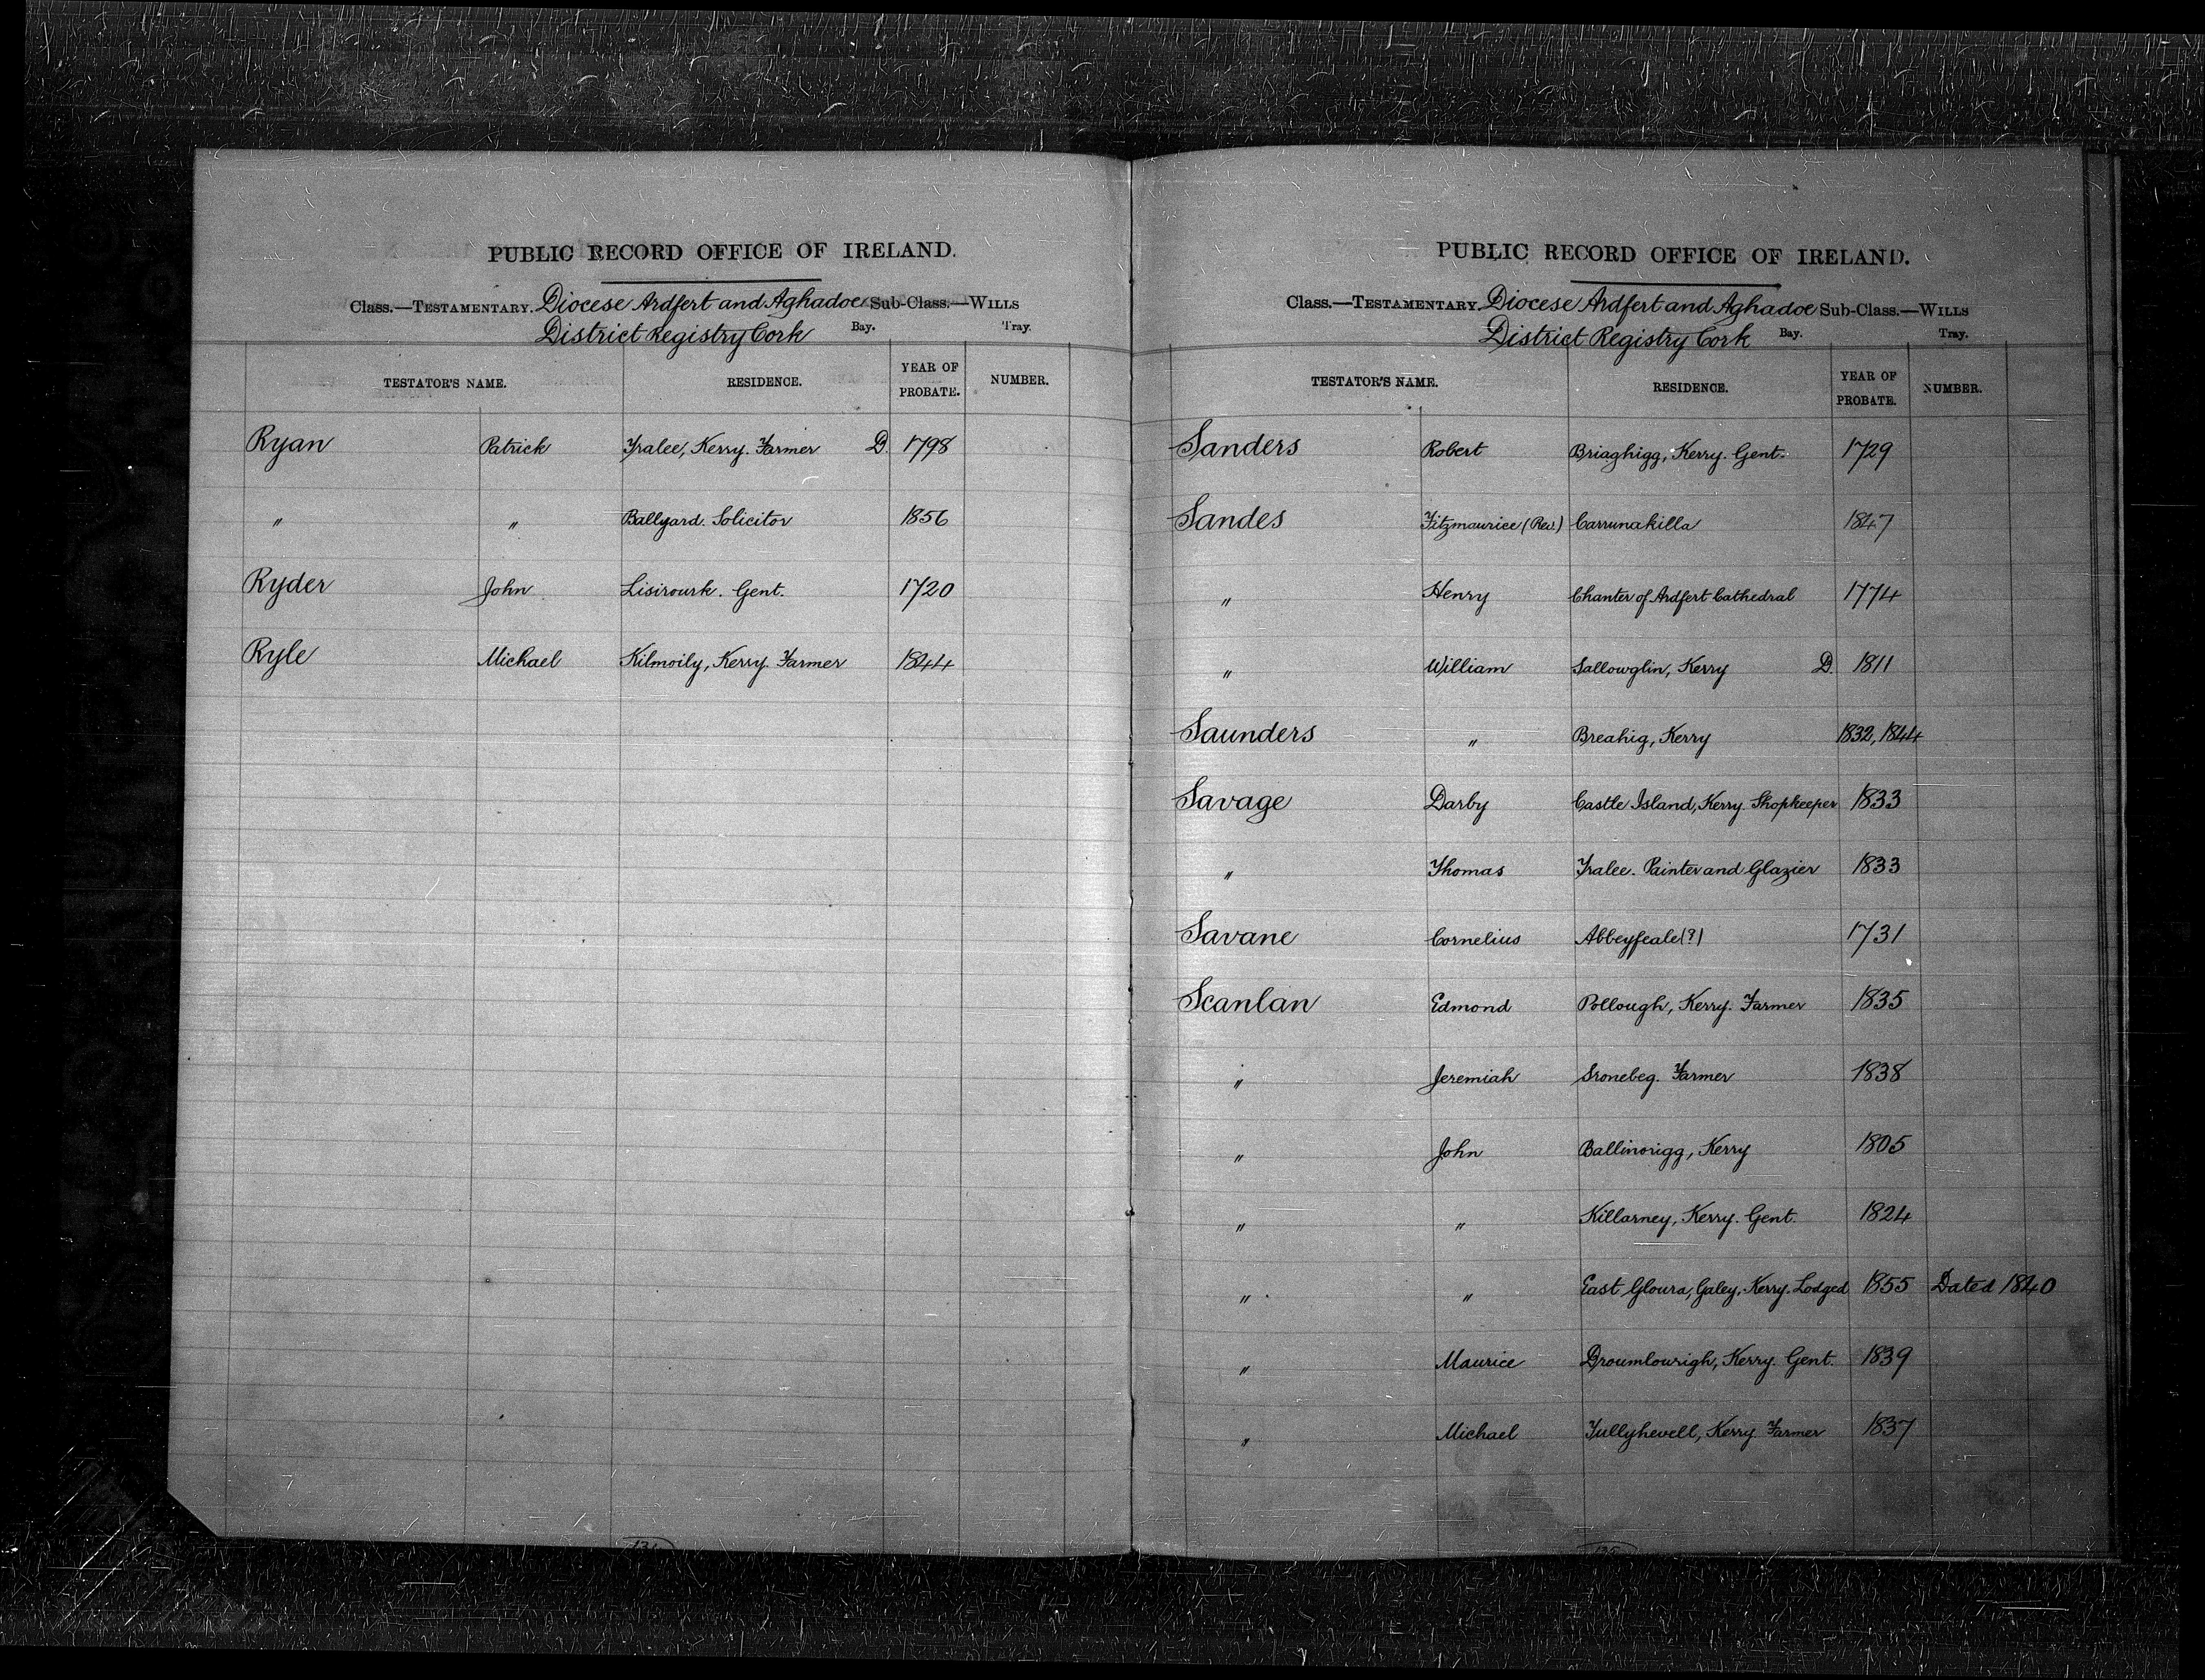 PUBLIC RECORD OFFICE OF IRELAND.
Class.—TESTAMENTARY. Diocese Ardfert and Aghadoe Sub-Class.—WILLS
District Registry Cork Bay. Tray.
TESTATOR'S NAME. RESIDENCE. YEAR OF PROBATE. NUMBER.
Ryan Patrick Tralee, Kerry. Farmer D. 1798
" " Ballyard. Solicitor 1856
Ryder John Lisirourk. Gent. 1720
Ryle Michael Kilmoily, Kerry. Farmer 1844
PUBLIC RECORD OFFICE OF IRELAND.
Class.—TESTAMENTARY. Diocese Ardfert and Aghadoe Sub-Class.—WILLS
District Registry Cork Bay. Tray.
TESTATOR'S NAME. RESIDENCE. YEAR OF PROBATE. NUMBER.
Sanders Robert Briaghigg, Kerry. Gent. 1729
Sandes Fitzmaurice (Rev.) Carrunakilla 1847
" Henry Chanter of Ardfert Cathedral 1774
" William Sallowglin, Kerry D. 1811
Saunders " Breahig, Kerry 1832, 1844
Savage Darby Castle Island, Kerry. Shopkeeper 1833
" Thomas Tralee. Painter and Glazier 1833
Savane Cornelius Abbeyfeale (?) 1731
Scanlan Edmond Pollough, Kerry. Farmer 1835
" Jeremiah Sronebeg. Farmer 1838
" John Ballinorigg, Kerry 1805
" " Killarney, Kerry. Gent. 1824
" " East Gloura, Galey, Kerry. Lodged 1855 Dated 1840
" Maurice Droumlourigh, Kerry. Gent. 1839
" Michael Tullyhevell, Kerry. Farmer 1837